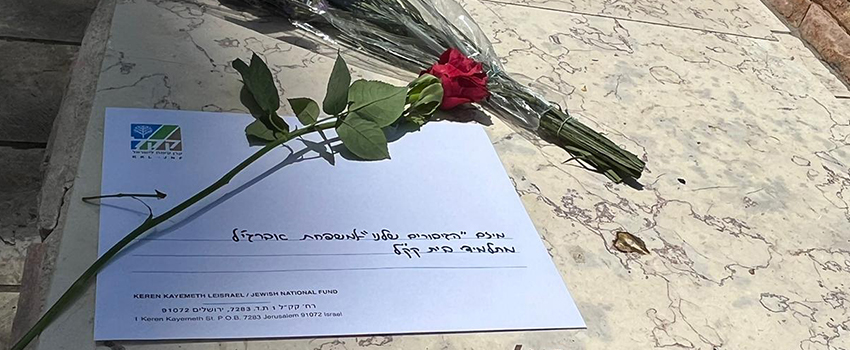 קרן קימת לישראל
KKL - JNF
מיזם "הגיבורים שלנו" למשפחת אוברג'יל
מתלמיד בית קק"ל
KEREN KAYEMETH LEISRAEL / JEWISH NATIONAL FUND
רח' קק"ל 1 ת.ד. 7283, ירושלים 91072
1 Keren Kayemeth St. P.O.B. 7283 Jerusalem 91072 Israel